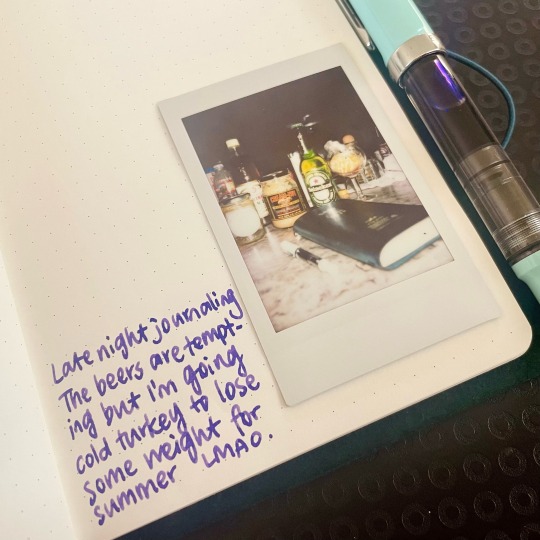 Late night journaling
The beers are tempt-
ing but I'm going
cold turkey to lose
some weight for
summer LMAO.